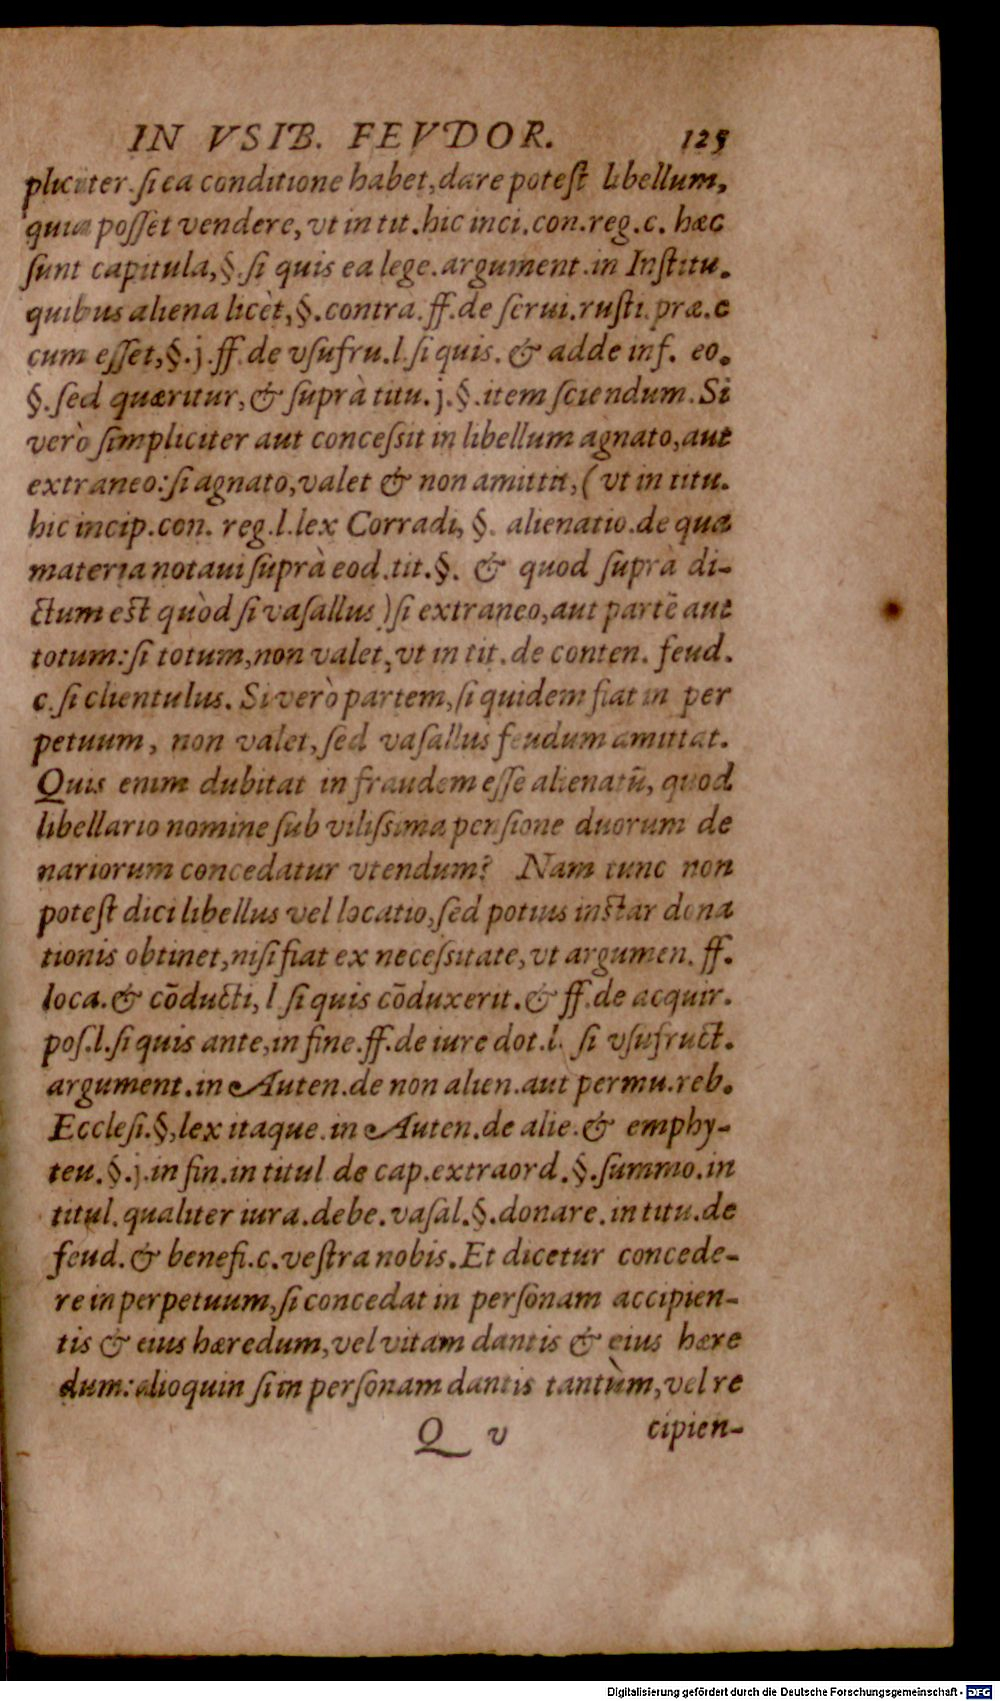 IN VSIB. FEVDOR. 125
pliciter. ſi ea conditione habet, dare poteſt libellum,
quia poſſet vendere, vt in tit. hic inci. con. reg. c. hæc
ſunt capitula, §. ſi quis ea lege. argument. in Inſtitu.
quibus aliena licèt, §. contra. ff. de ſerui. ruſti. præ. c
cum eſſet, §. j. ff. de vſufru. l. ſi quis. & adde inf. eo.
§. ſed quæritur, & ſuprà titu. j. §. item ſciendum. Si
verò ſimpliciter aut conceſsit in libellum agnato, aut
extraneo: ſi agnato, valet & non amittit, ( vt in titu.
hic incip. con. reg. l. lex Corradi, §. alienatio. de qua
materia notaui ſuprà eod. tit. §. & quod ſuprà di-
ctum est quòd ſi vaſallus ) ſi extraneo, aut partē aut
totum: ſi totum, non valet, vt in tit. de conten. feud.
c. ſi clientulus. Si verò partem, ſi quidem fiat in per
petuum, non valet, ſed vaſallus feudum amittat.
Quis enim dubitat in fraudem eſſe alienatū, quod
libellario nomine ſub viliſsima penſione duorum de
nariorum concedatur vtendum? Nam tunc non
poteſt dici libellus vel locatio, ſed potius instar dona
tionis obtinet, niſi fiat ex neceſsitate, vt argumen. ff.
loca. & cōducti, l ſi quis cōduxerit. & ff. de acquir.
poſ. l. ſi quis ante, in fine. ff. de iure dot. l. ſi vſufruct.
argument. in Auten. de non alien. aut permu. reb.
Eccleſi. §, lex itaque. in Auten. de alie. & emphy-
teu. §. j. in fin. in titul de cap. extraord. §. ſummo. in
titul. qualiter iura. debe. vaſal. §. donare. in titu. de
feud. & benefi. c. veſtra nobis. Et dicetur concede-
re in perpetuum, ſi concedat in perſonam accipien-
tis & eius hæredum, vel vitam dantis & eius hære
dum: alioquin ſi in perſonam dantis tantùm, vel re
Q v cipien-
Digitalisierung gefördert durch die Deutsche Forschungsgemeinschaft - DFG